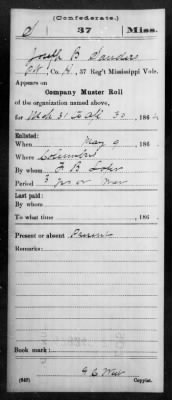 (Confederate.)
S 37 Miss.
Joseph B Sanders
Pvt, Co. H, 37 Reg't Mississippi Vols.
Appears on
Company Muster Roll
of the organization named above,
for Mch 31 to Apl 30, 186
Enlisted:
When May 9, 186
Where Columbus
By whom J B
Period 3 yrs or war
Last paid:
By whom
To what time , 186
Present or absent Present
Remarks:
Book mark:
(642) Copyist.